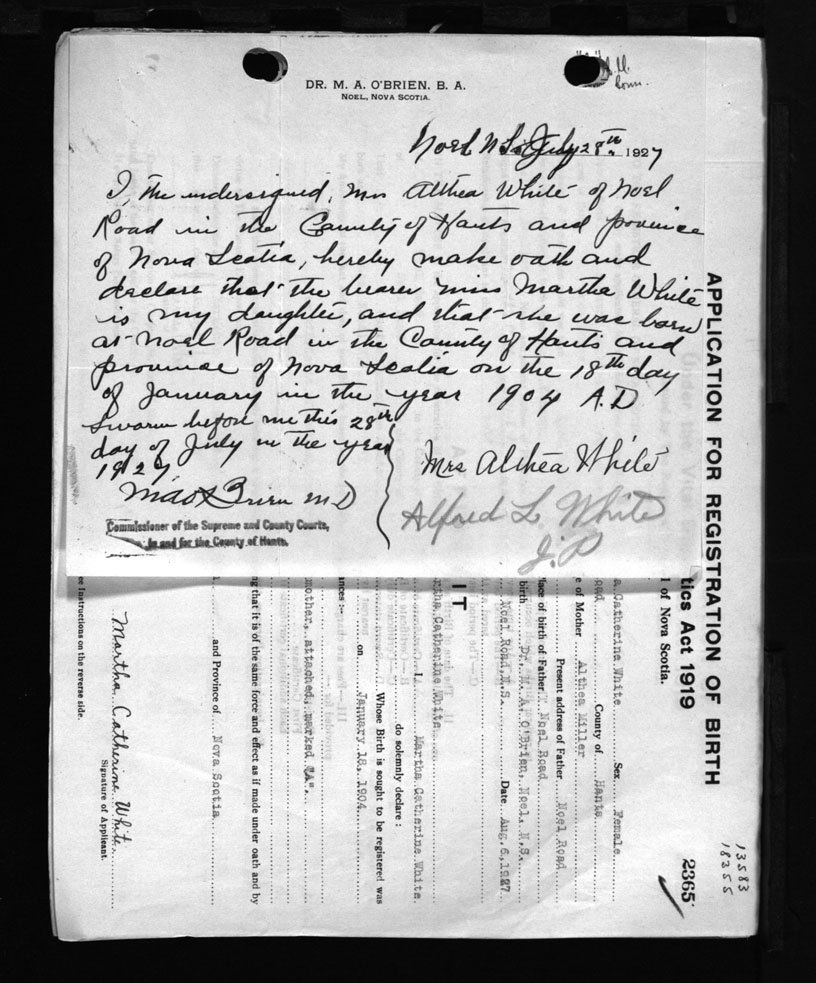 DR. M. A. O'BRIEN, B. A.
NOEL, NOVA SCOTIA.
Noel N.S. July 28th 1927
I, the undersigned, Mrs Althea White of Noel
Road in the County of Hants and province
of Nova Scotia, hereby make oath and
declare that the bearer Miss Martha White
is my daughter, and that she was born
at Noel Road in the County of Hants and
province of Nova Scotia on the 18th day
of January in the year 1904 A.D
Sworn before me this 28th
day of July in the year
1927
Mrs Althea White
M A O'Brien M D
Alfred L. White
J.P
Commissioner of the Supreme and County Courts,
In and for the County of Hants.
APPLICATION FOR REGISTRATION OF BIRTH
tics Act 1919
l of Nova Scotia.
2365
13583
18355
a Catherine White Sex Female
oad County of Hants
e of Mother Althea Miller
Present address of Father Noel Road
lace of birth of Father Noel Road
birth Dr. M. A. O'Brien, Noel, N.S.
Noel Road N.S. Date Aug. 6, 1927
IT
rtha Catherine White
I, Martha Catherine White
do solemnly declare :
Whose Birth is sought to be registered was
on January 18, 1904
ances :—
mother, attached, marked "A".
ng that it is of the same force and effect as if made under oath and by
and Province of Nova Scotia
Martha Catherine White
Signature of Applicant.
ee Instructions on the reverse side.